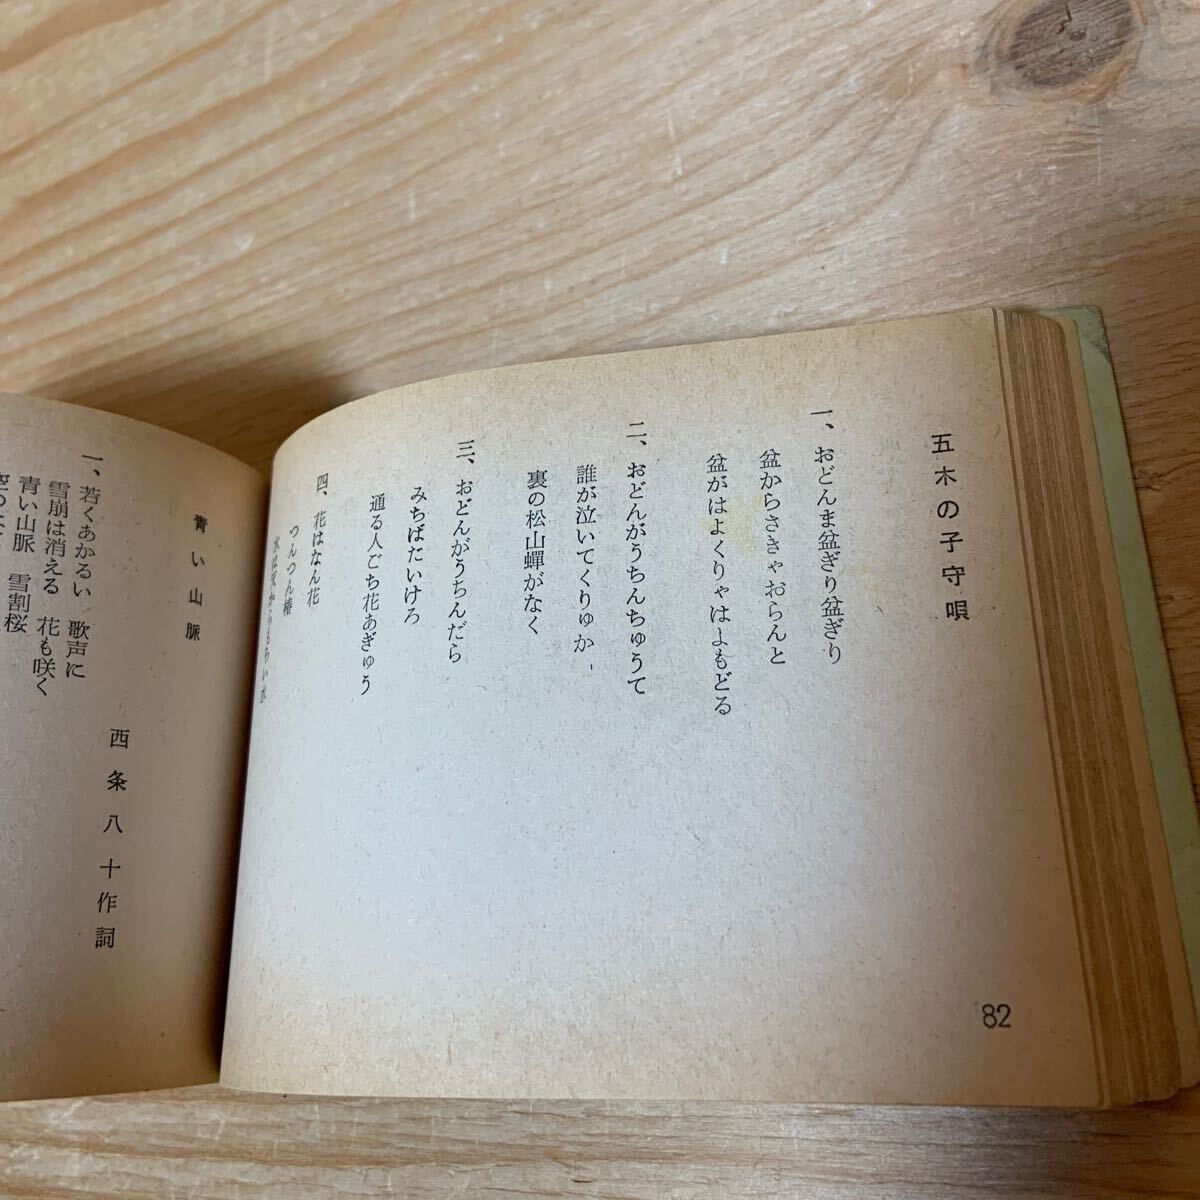 五木の子守唄
一、おどんま盆ぎり盆ぎり
盆からさきゃおらんと
盆がはよくりゃはよもどる
二、おどんがうちんちゅうて
誰が泣いてくりゅか、
裏の松山蟬がなく
三、おどんがうちんだら
みちばたいけろ
通る人ごち花あぎゅう
四、花はなん花
つんつん椿
水は天からもらい水
82
青い山脈
西条八十作詞
一、若くあかるい 歌声に
雪崩は消える 花も咲く
青い山脈 雪割桜